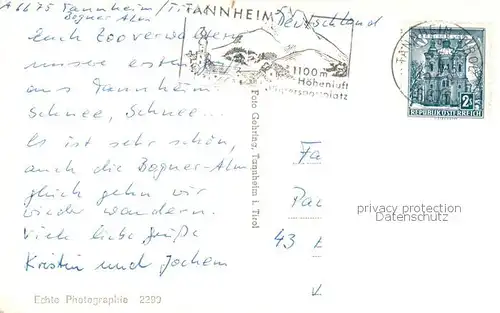 A 6675 Tannheim / Tirol
Bogner Alm
Deutschland
Euch
unsere ersten
aus Tannheim
Schnee, Schnee...
Es ist sehr schön,
auch die Bogner-Alm
gehn wir
wieder wandern.
Viele liebe Grüße
Kristin und Jochem
Echte Photographie 2290
Foto Gohring, Tannheim i. Tirol
TANNHEIM
1100m
Höhenluft
Wintersportplatz
2S
REPUBLIK ÖSTERREICH
Fa
Pa
43
privacy protection
Datenschutz